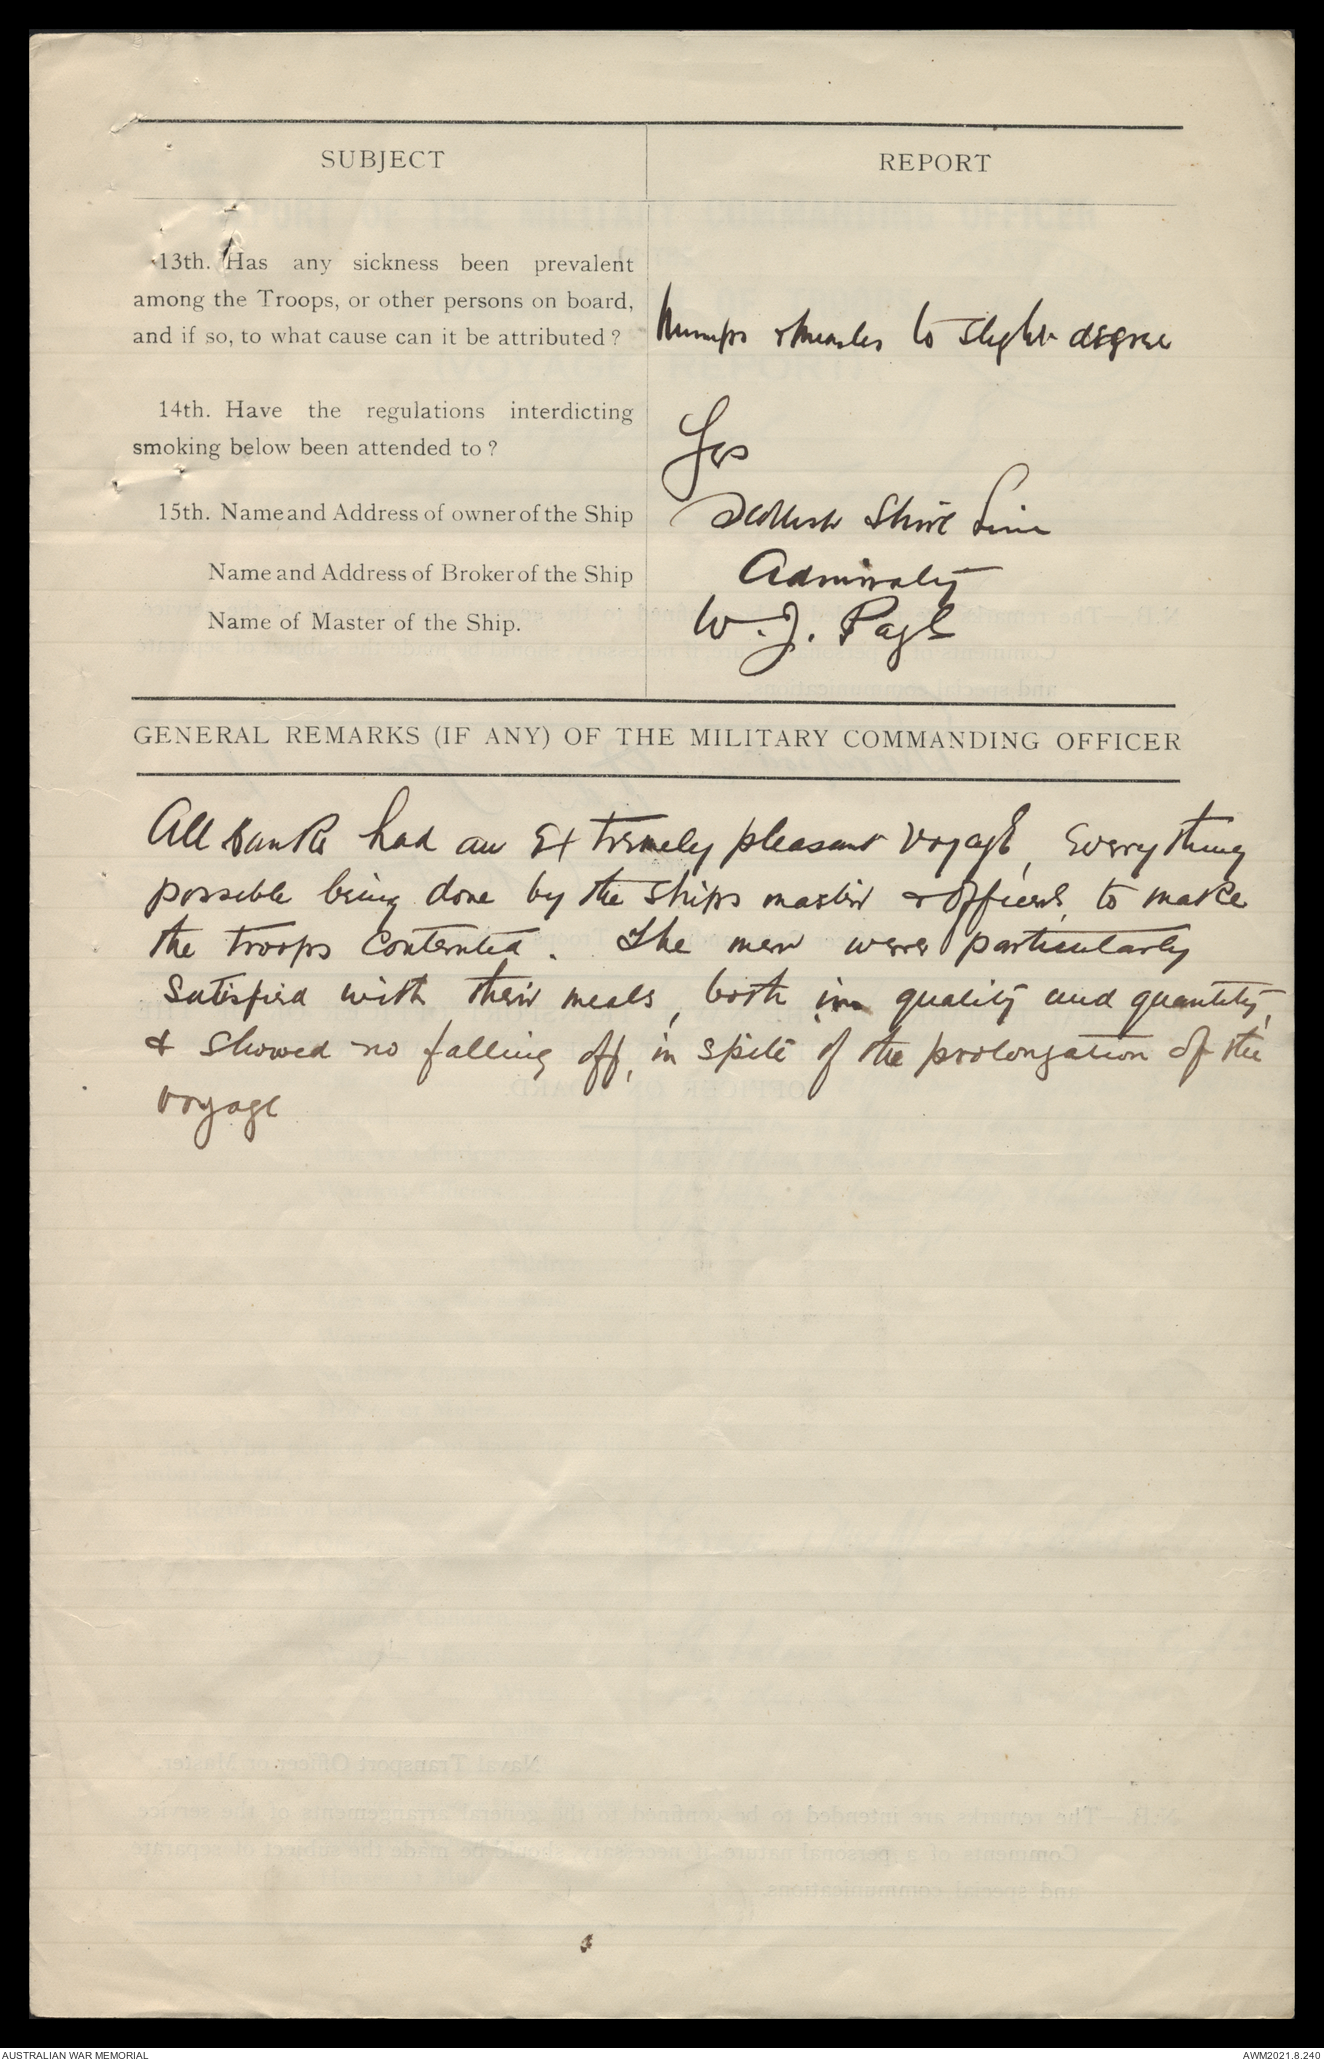 SUBJECT
REPORT
13th. Has any sickness been prevalent
among the Troops, or other persons on board,
and if so, to what cause can it be attributed?
Mumps & Measles to slight degree
14th. Have the regulations interdicting
smoking below been attended to?
Yes
15th. Name and Address of owner of the Ship
Scottish Shire Line
Name and Address of Broker of the Ship
Admiralty
Name of Master of the Ship.
W. J. Page
GENERAL REMARKS (IF ANY) OF THE MILITARY COMMANDING OFFICER
All ranks had an extremely pleasant voyage, everything
possible being done by the ships master & officers, to make
the troops contented. The men were particularly
satisfied with their meals, both in quality and quantity,
& showed no falling off, in spite of the prolongation of the
voyage
AUSTRALIAN WAR MEMORIAL
AWM2021.8.240